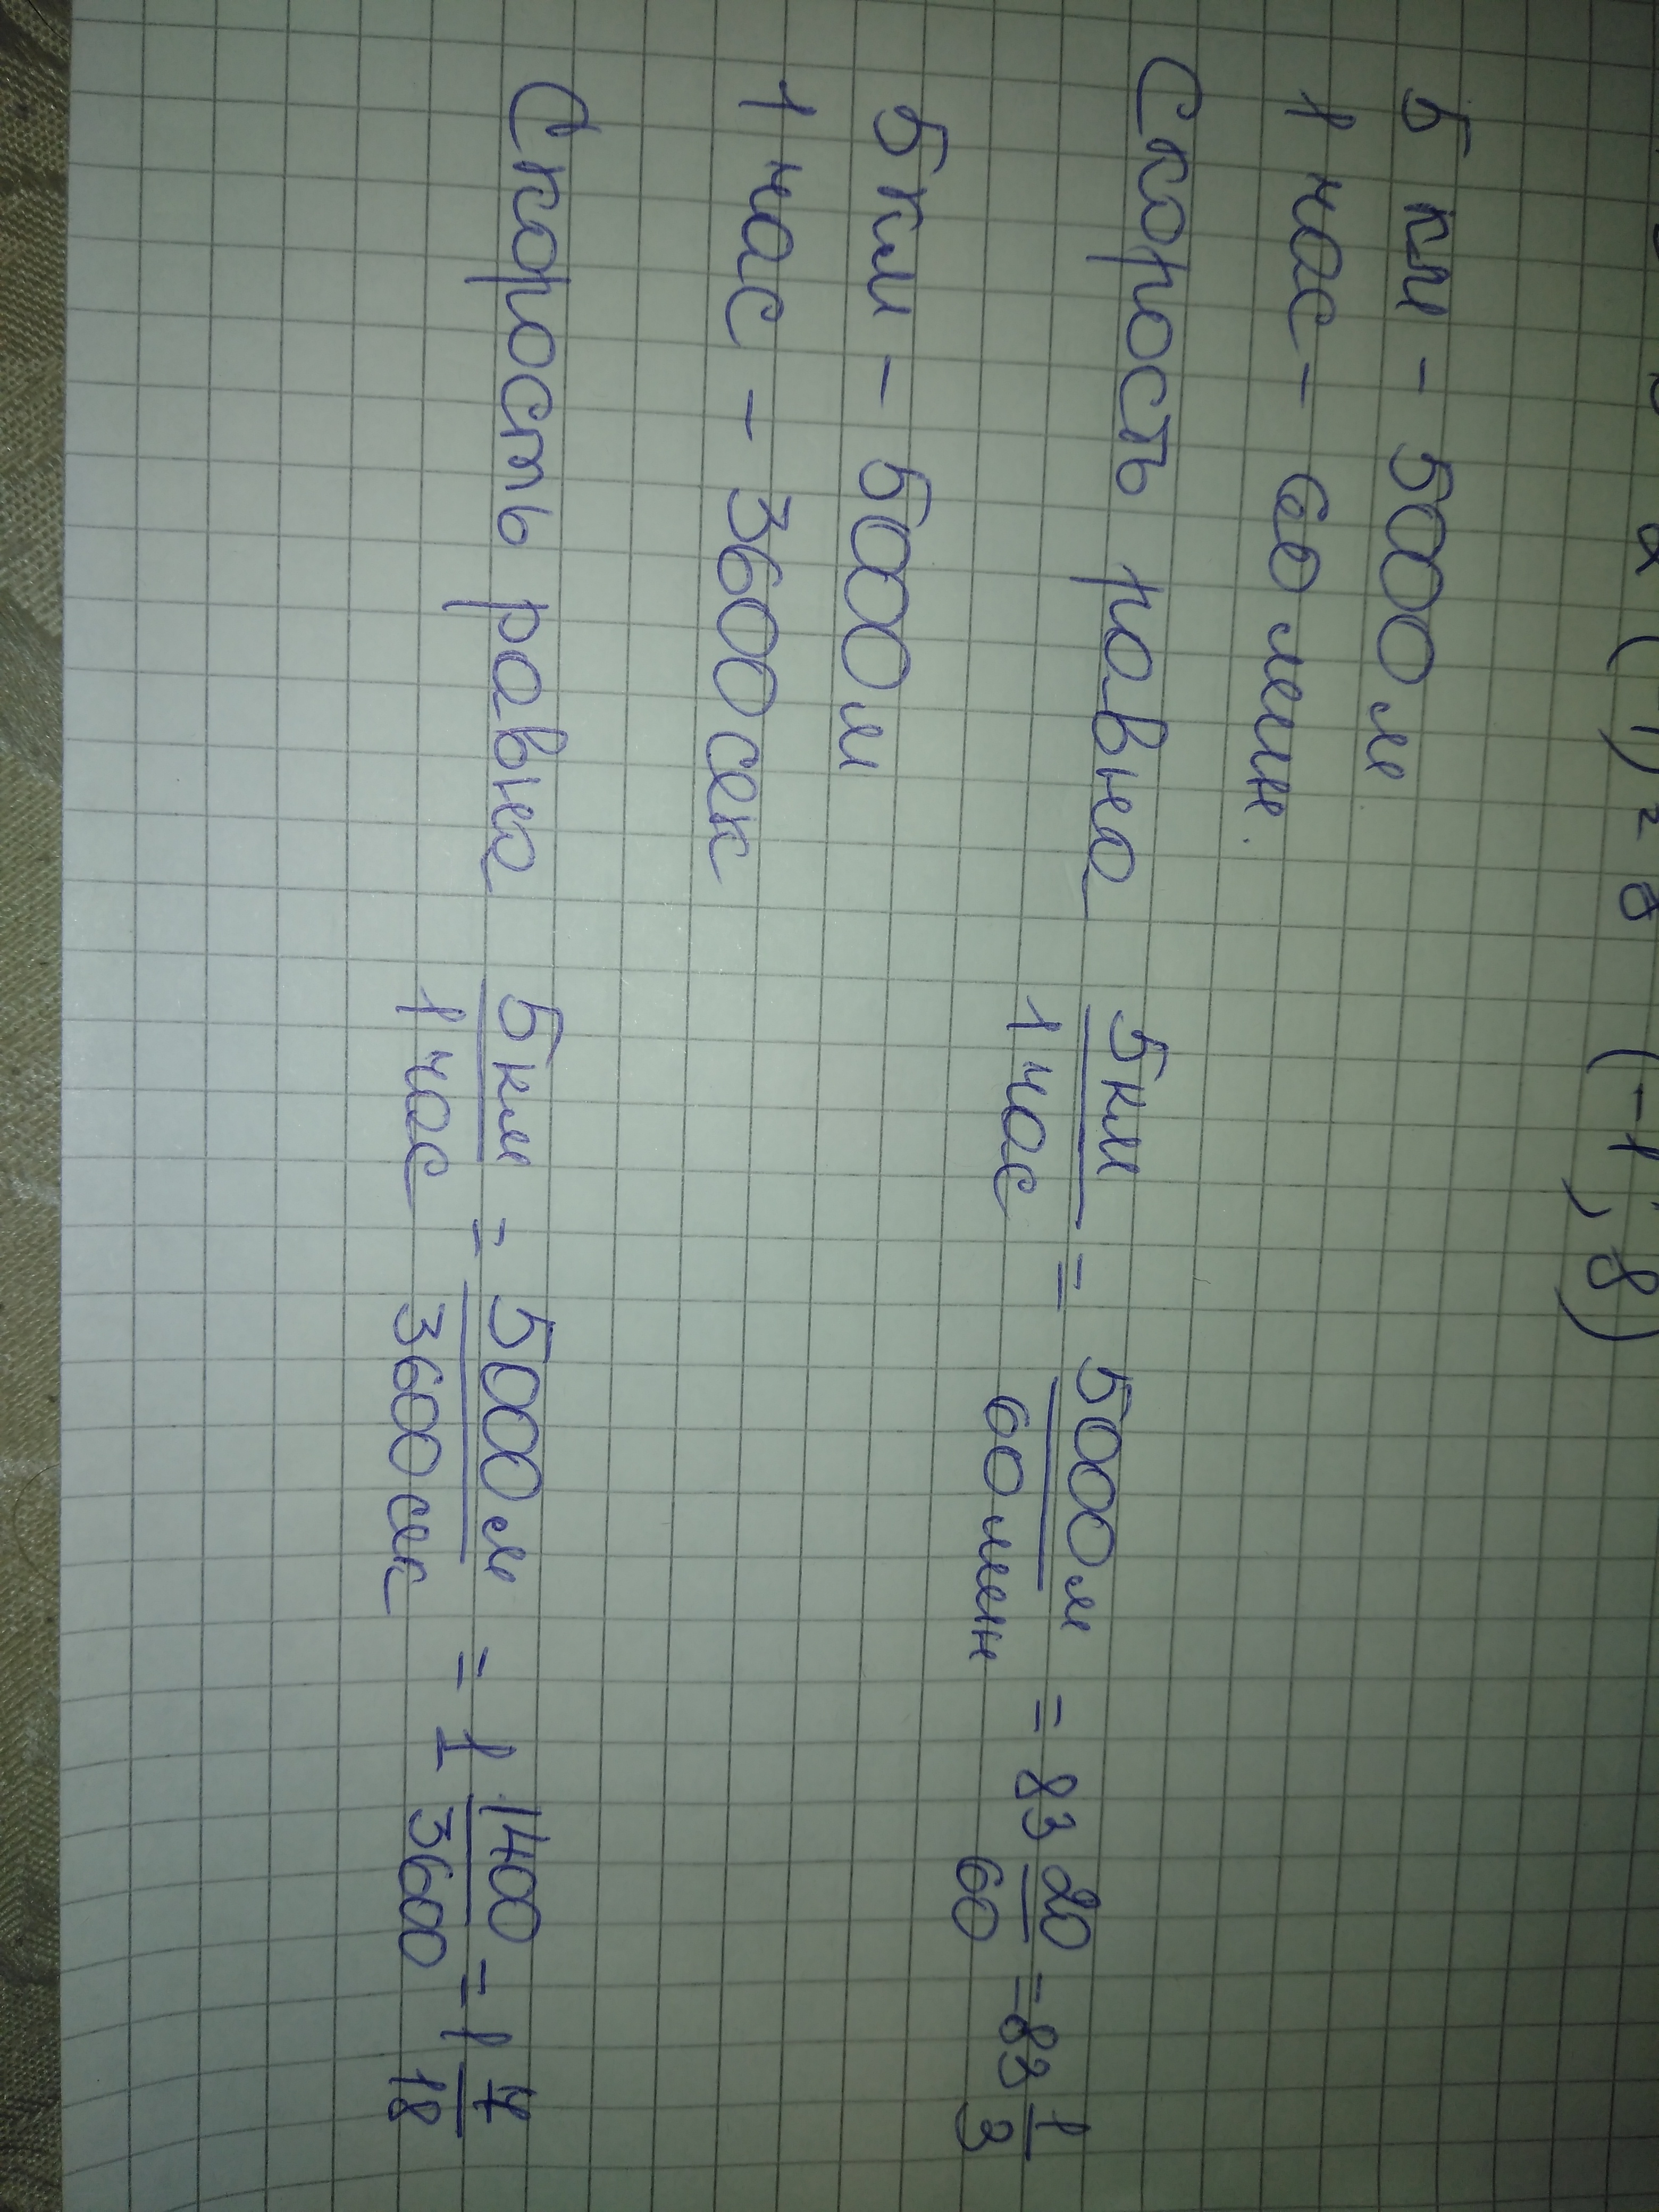 (-1; 8)
5 км - 5000 м
1 час - 60 мин.
Скорость равна 5км/1час = 5000м/60мин = 83 20/60 = 83 1/3
5км - 5000м
1 час - 3600сек
Скорость равна 5км/1час = 5000м/3600сек = 1 1400/3600 = 1 7/18